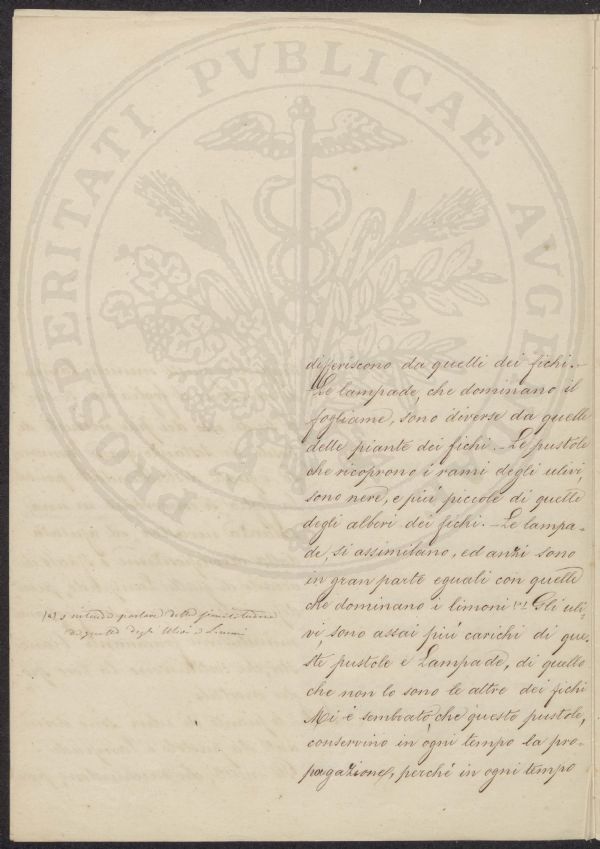 PROSPERITATI PVBLICAE AVGE
differiscono da quelli dei fichi.–
Le lampade, che dominano il
fogliame, sono diverse da quelle
delle piante dei fichi.– Le pustole
che ricoprono i rami degli ulivi,
sono nere, e più piccole di quelle
degli alberi dei fichi.– Le lampa-
de, si assimilano, ed anzi sono
in gran parte eguali con quelle
che dominano i limoni (*) Gli uli-
vi, sono assai più carichi di que-
ste pustole e Lampade, di quello
che non lo sono le altre dei fichi
Mi è sembrato, che queste pustole,
conservino in ogni tempo la pro-
pagazione, perché in ogni tempo
s'intende parlare della
di quella degli Ulivi e Limoni